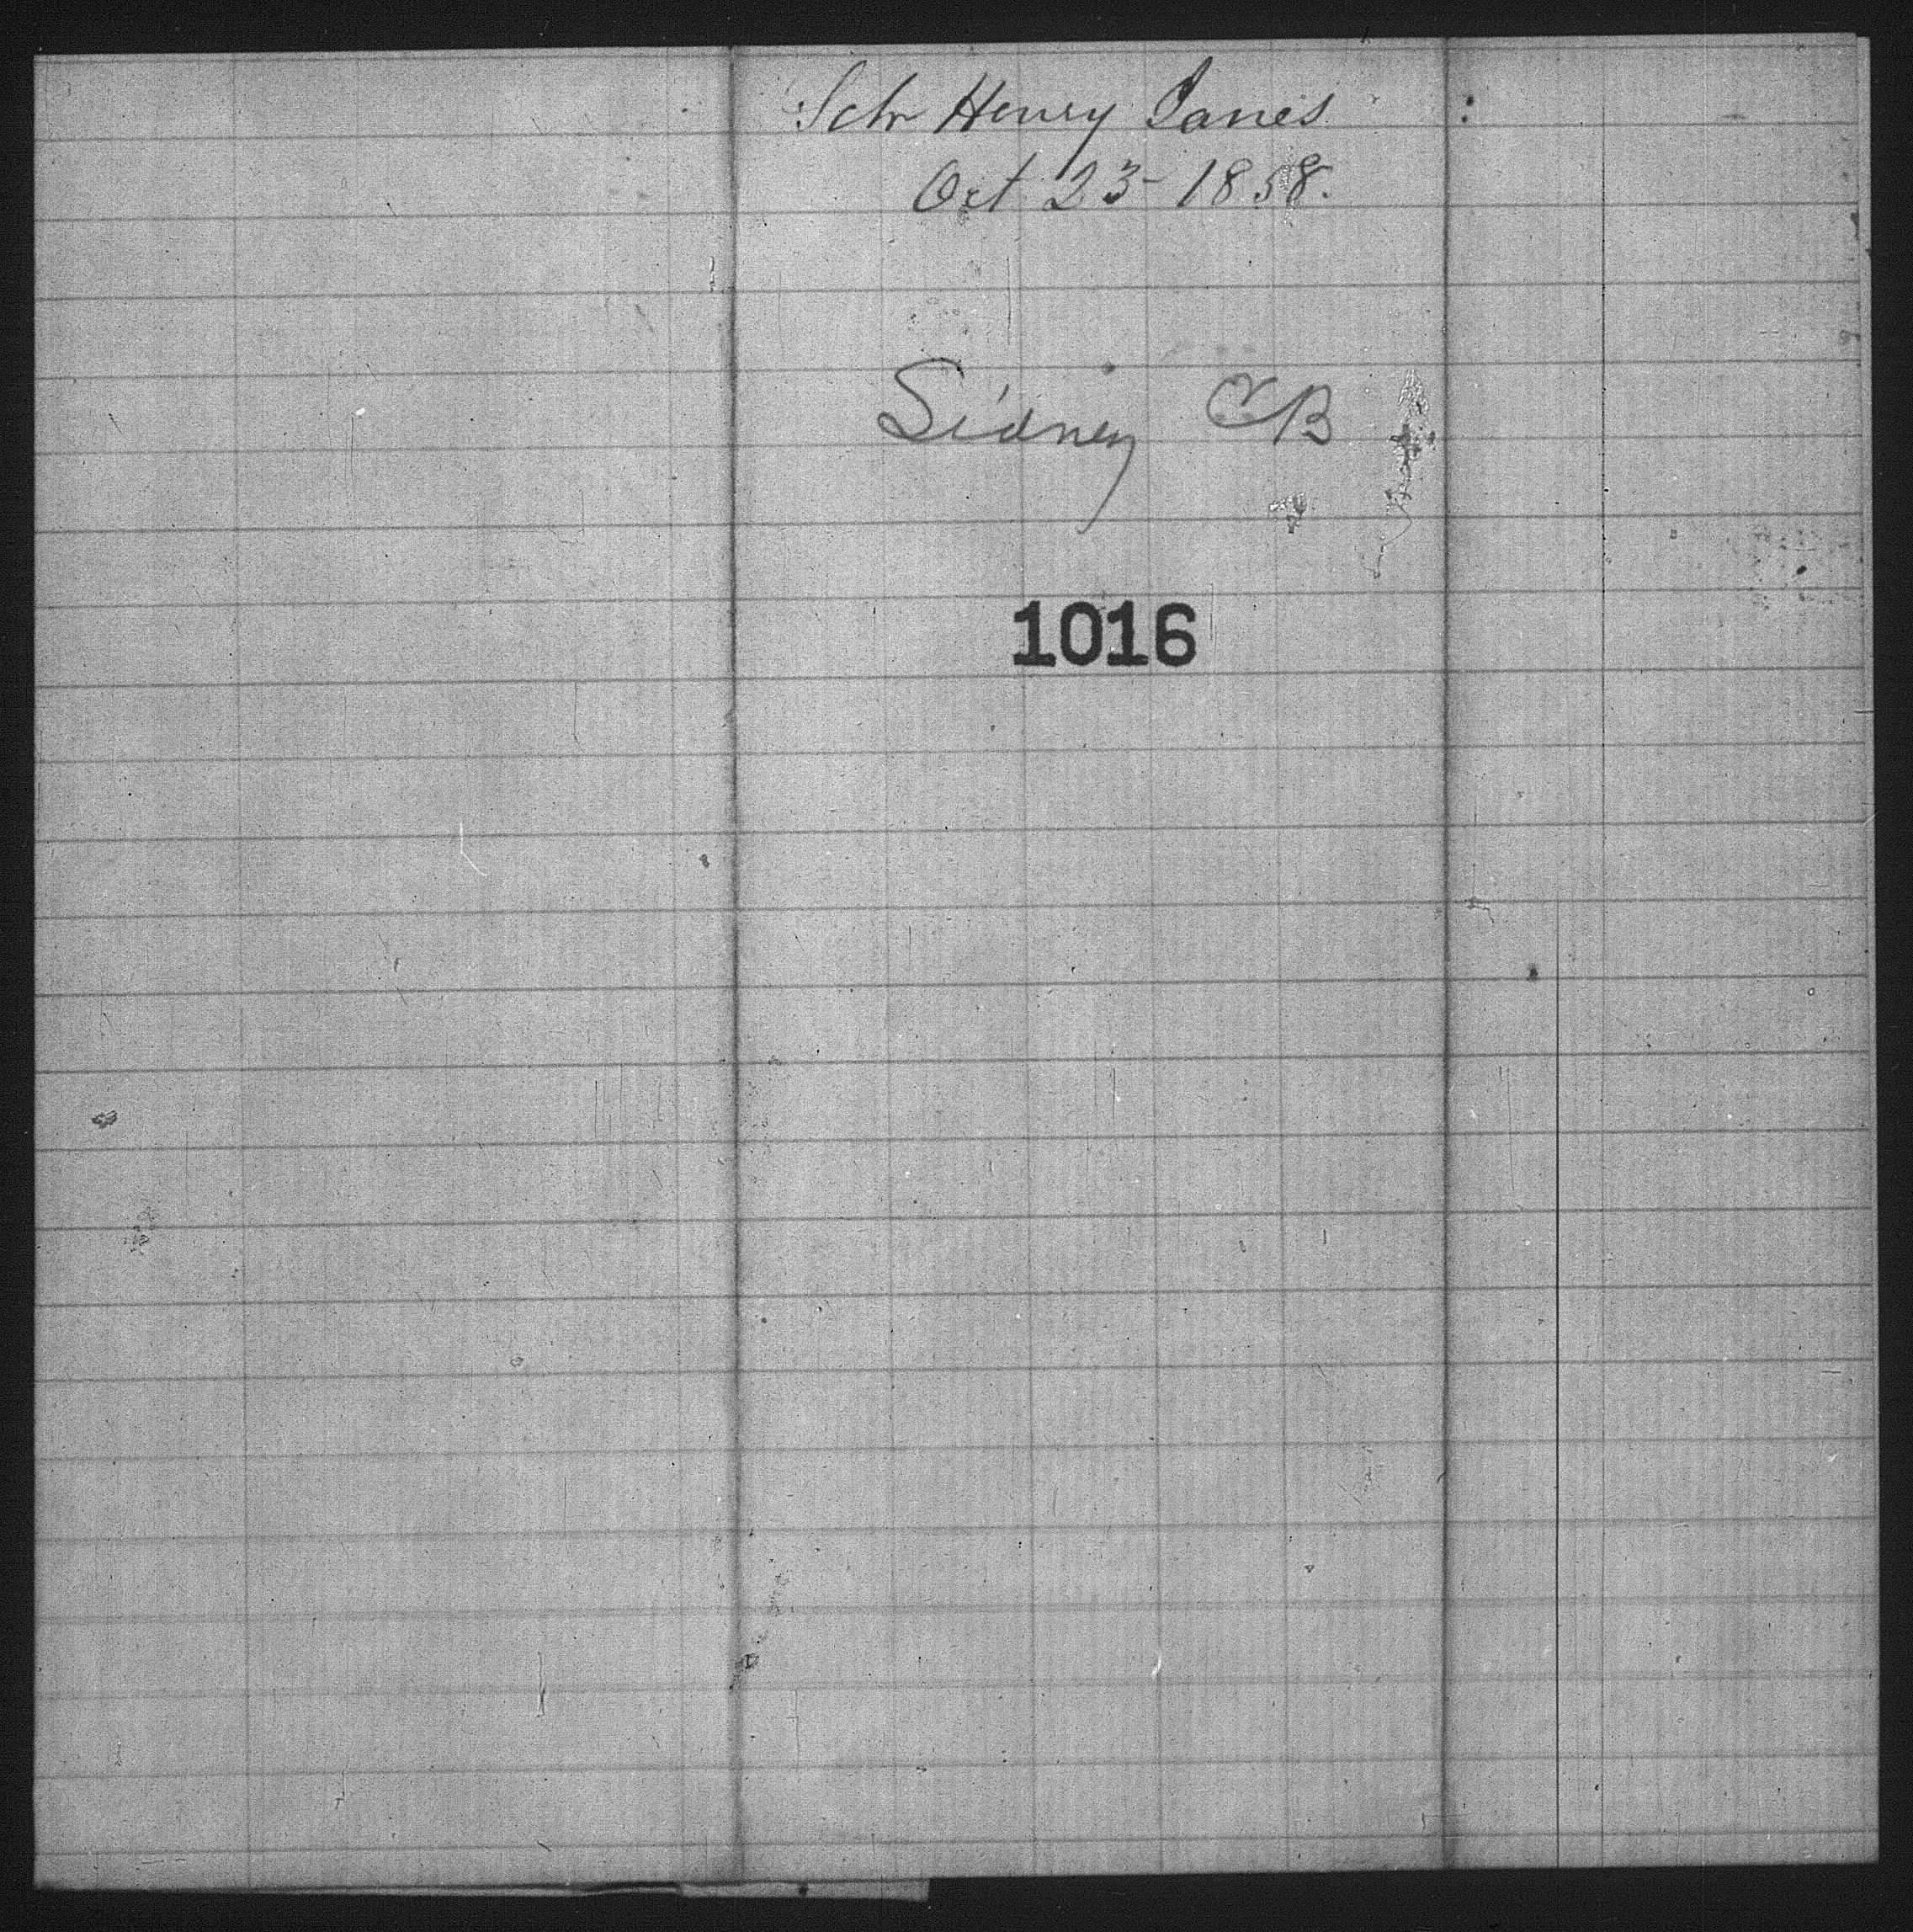 Schr Henry Janes
Oct 23 - 1858.
Sidney CB
1016